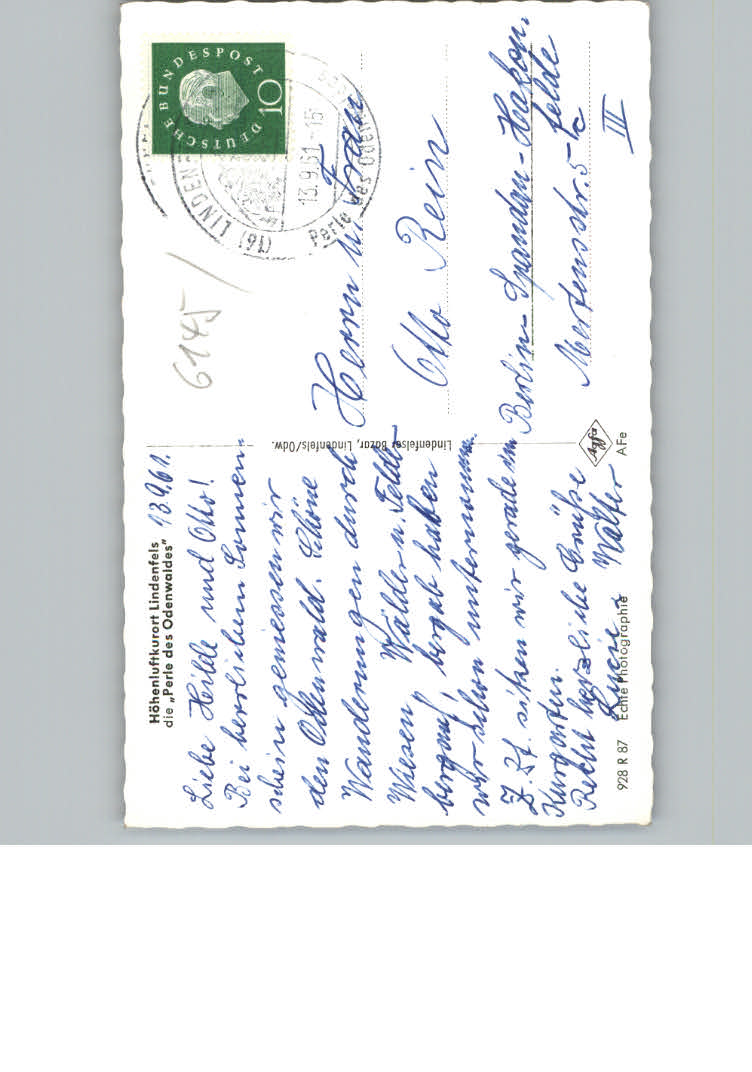 Höhenluftkurort Lindenfels
die „Perle des Odenwaldes"
13.9.61.
Liebe Heilde und Otto!
Bei herrlichem Sonnen-
schein geniessen wir
den Odenwald. Schöne
Wanderungen durch
Wiesen, Wälder u. Felder
bergauf, bergab haben
wir schon unternommen.
Z. Zt. sitzen wir gerade im
Kurgarten.
Recht herzliche Grüße
Lucie & Walter
928 R 87 Echte Photographie
Lindenfelser Bazar, Lindenfels/Odw.
Agfa
A Fe
DEUTSCHE BUNDESPOST
10
(16) LINDENF
13.9.61.-16
Perle des Oden
6145
Herrn u. Frau
Otto Rein
Berlin-Spandau-Hakon.
felde
Mertensstr. 5 c
III